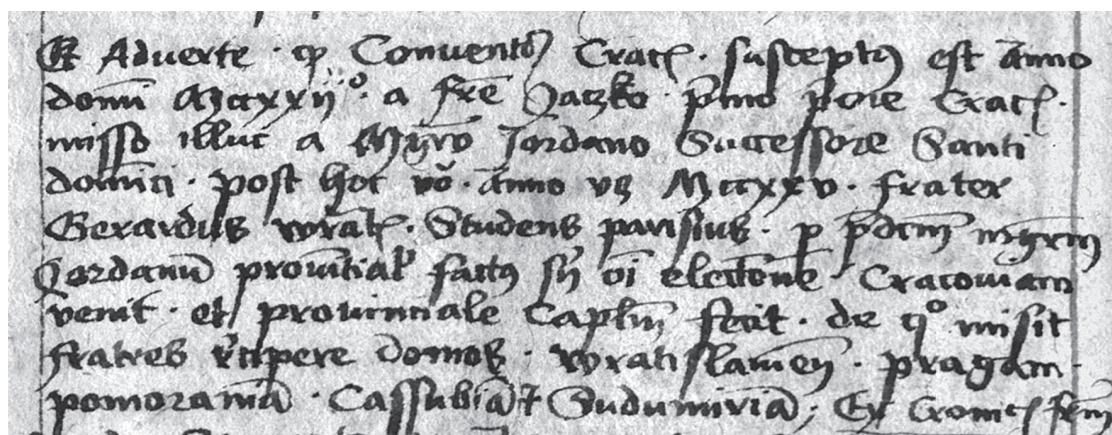 Et Advertе · qꝫ Conventꝰ Cracꝭ · susceptꝰ est āno
domī Mccxxijº · a frē Jaczko p̄mo p̄ore Cracꝭ ·
misso illuc a Mgr̄o Jordano Successore Santi
domīci · post hoc vō · āno vꝫ Mccxxv · frater
Gerardus wratꝭ · Studens parisius · ꝑ p̄dcm̄ mgrm̄
Jordanū provītialē factꝰ sn̄ oī elect̄one Cracoviam
venit · et provinciale Capl̄m fecit · de qº misit
fratres r̄cipere domos · wratislavien̄ · pragam ·
pomoraniā · Cassubiā et Sudumiriā · Ex Cronicꝭ frm̄